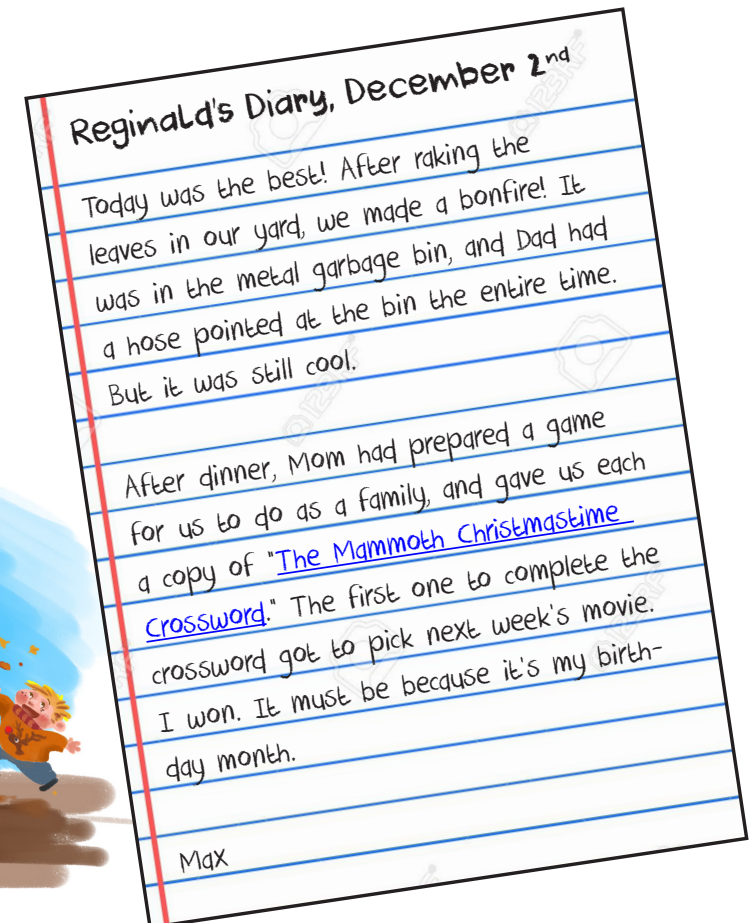 Reginald's Diary, December 2nd
Today was the best! After raking the
leaves in our yard, we made a bonfire! It
was in the metal garbage bin, and Dad had
a hose pointed at the bin the entire time.
But it was still cool.
After dinner, Mom had prepared a game
for us to do as a family, and gave us each
a copy of "The Mammoth Christmastime
Crossword." The first one to complete the
crossword got to pick next week's movie.
I won. It must be because it's my birth-
day month.
Max